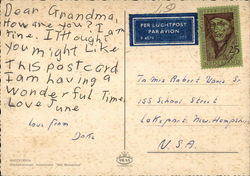 Dear Grandma,
How are you? I am
fine. I Thought
you might Like
this postcard
I am having a
wonderful Time.
Love June
Love from
PER LUCHTPOST
PAR AVION
25
To Mrs Robert
155 School Street
Lakeport New Hampshire
U.S.A.